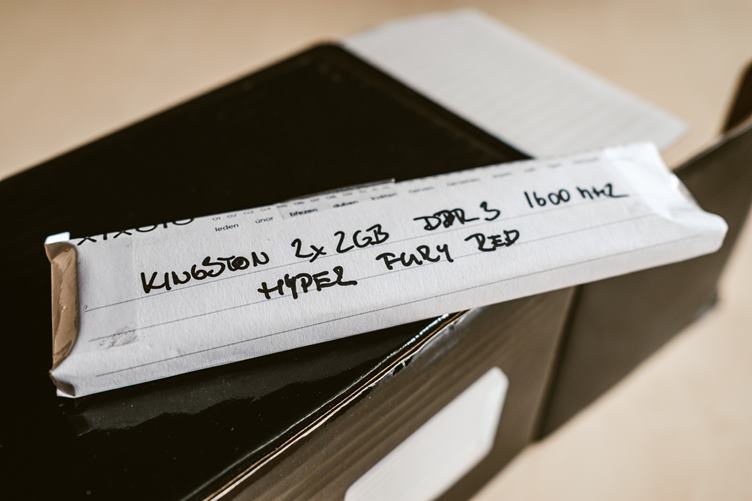 leden únor březen duben květen
KINGSTON 2x 2GB DDR3 1600 hHz
HYPER FURY RED